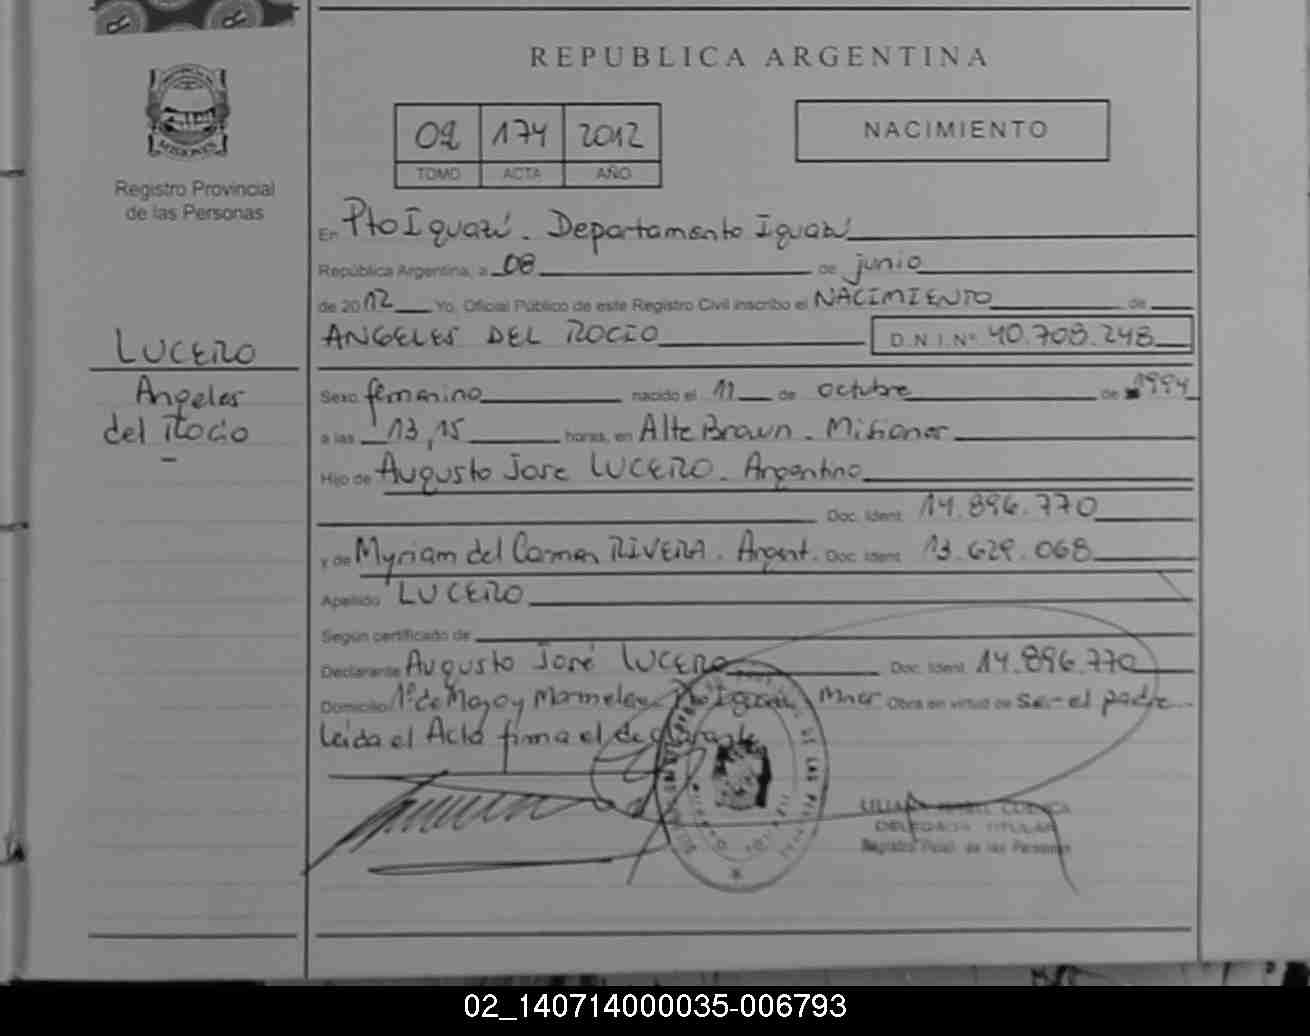 REPUBLICA ARGENTINA
MISIONES
Registro Provincial
de las Personas
02 174 2012
TOMO ACTA AÑO
NACIMIENTO
En Pto Iguazú. Departamento Iguazú
República Argentina, a 08 de junio
de 2012 Yo, Oficial Público de este Registro Civil inscribo el NACIMIENTO de
ANGELES DEL ROCIO D.N.I. Nº 40.708.248
LUCERO
Angeles
del Rocio
Sexo femenino nacido el 11 de octubre de 1994
a las 13,15 horas, en Alte Brown. Misiones
Hijo de Augusto Jose LUCERO. Argentino
Doc. Ident. 14.896.770
y de Myriam del Carmen RIVERA. Argent. Doc. Ident. 13.629.068
Apellido LUCERO
Según certificado de
Declarante Augusto José LUCERO Doc. Ident. 14.896.770
Domicilio 1º de Mayo y Pto Iguazú Mnes Obra en virtud de Ser el padre
leida el Acta firma el declarante
DE LAS
DELEGADA TITULAR
Registro Pcial. de las Personas
02_140714000035-006793